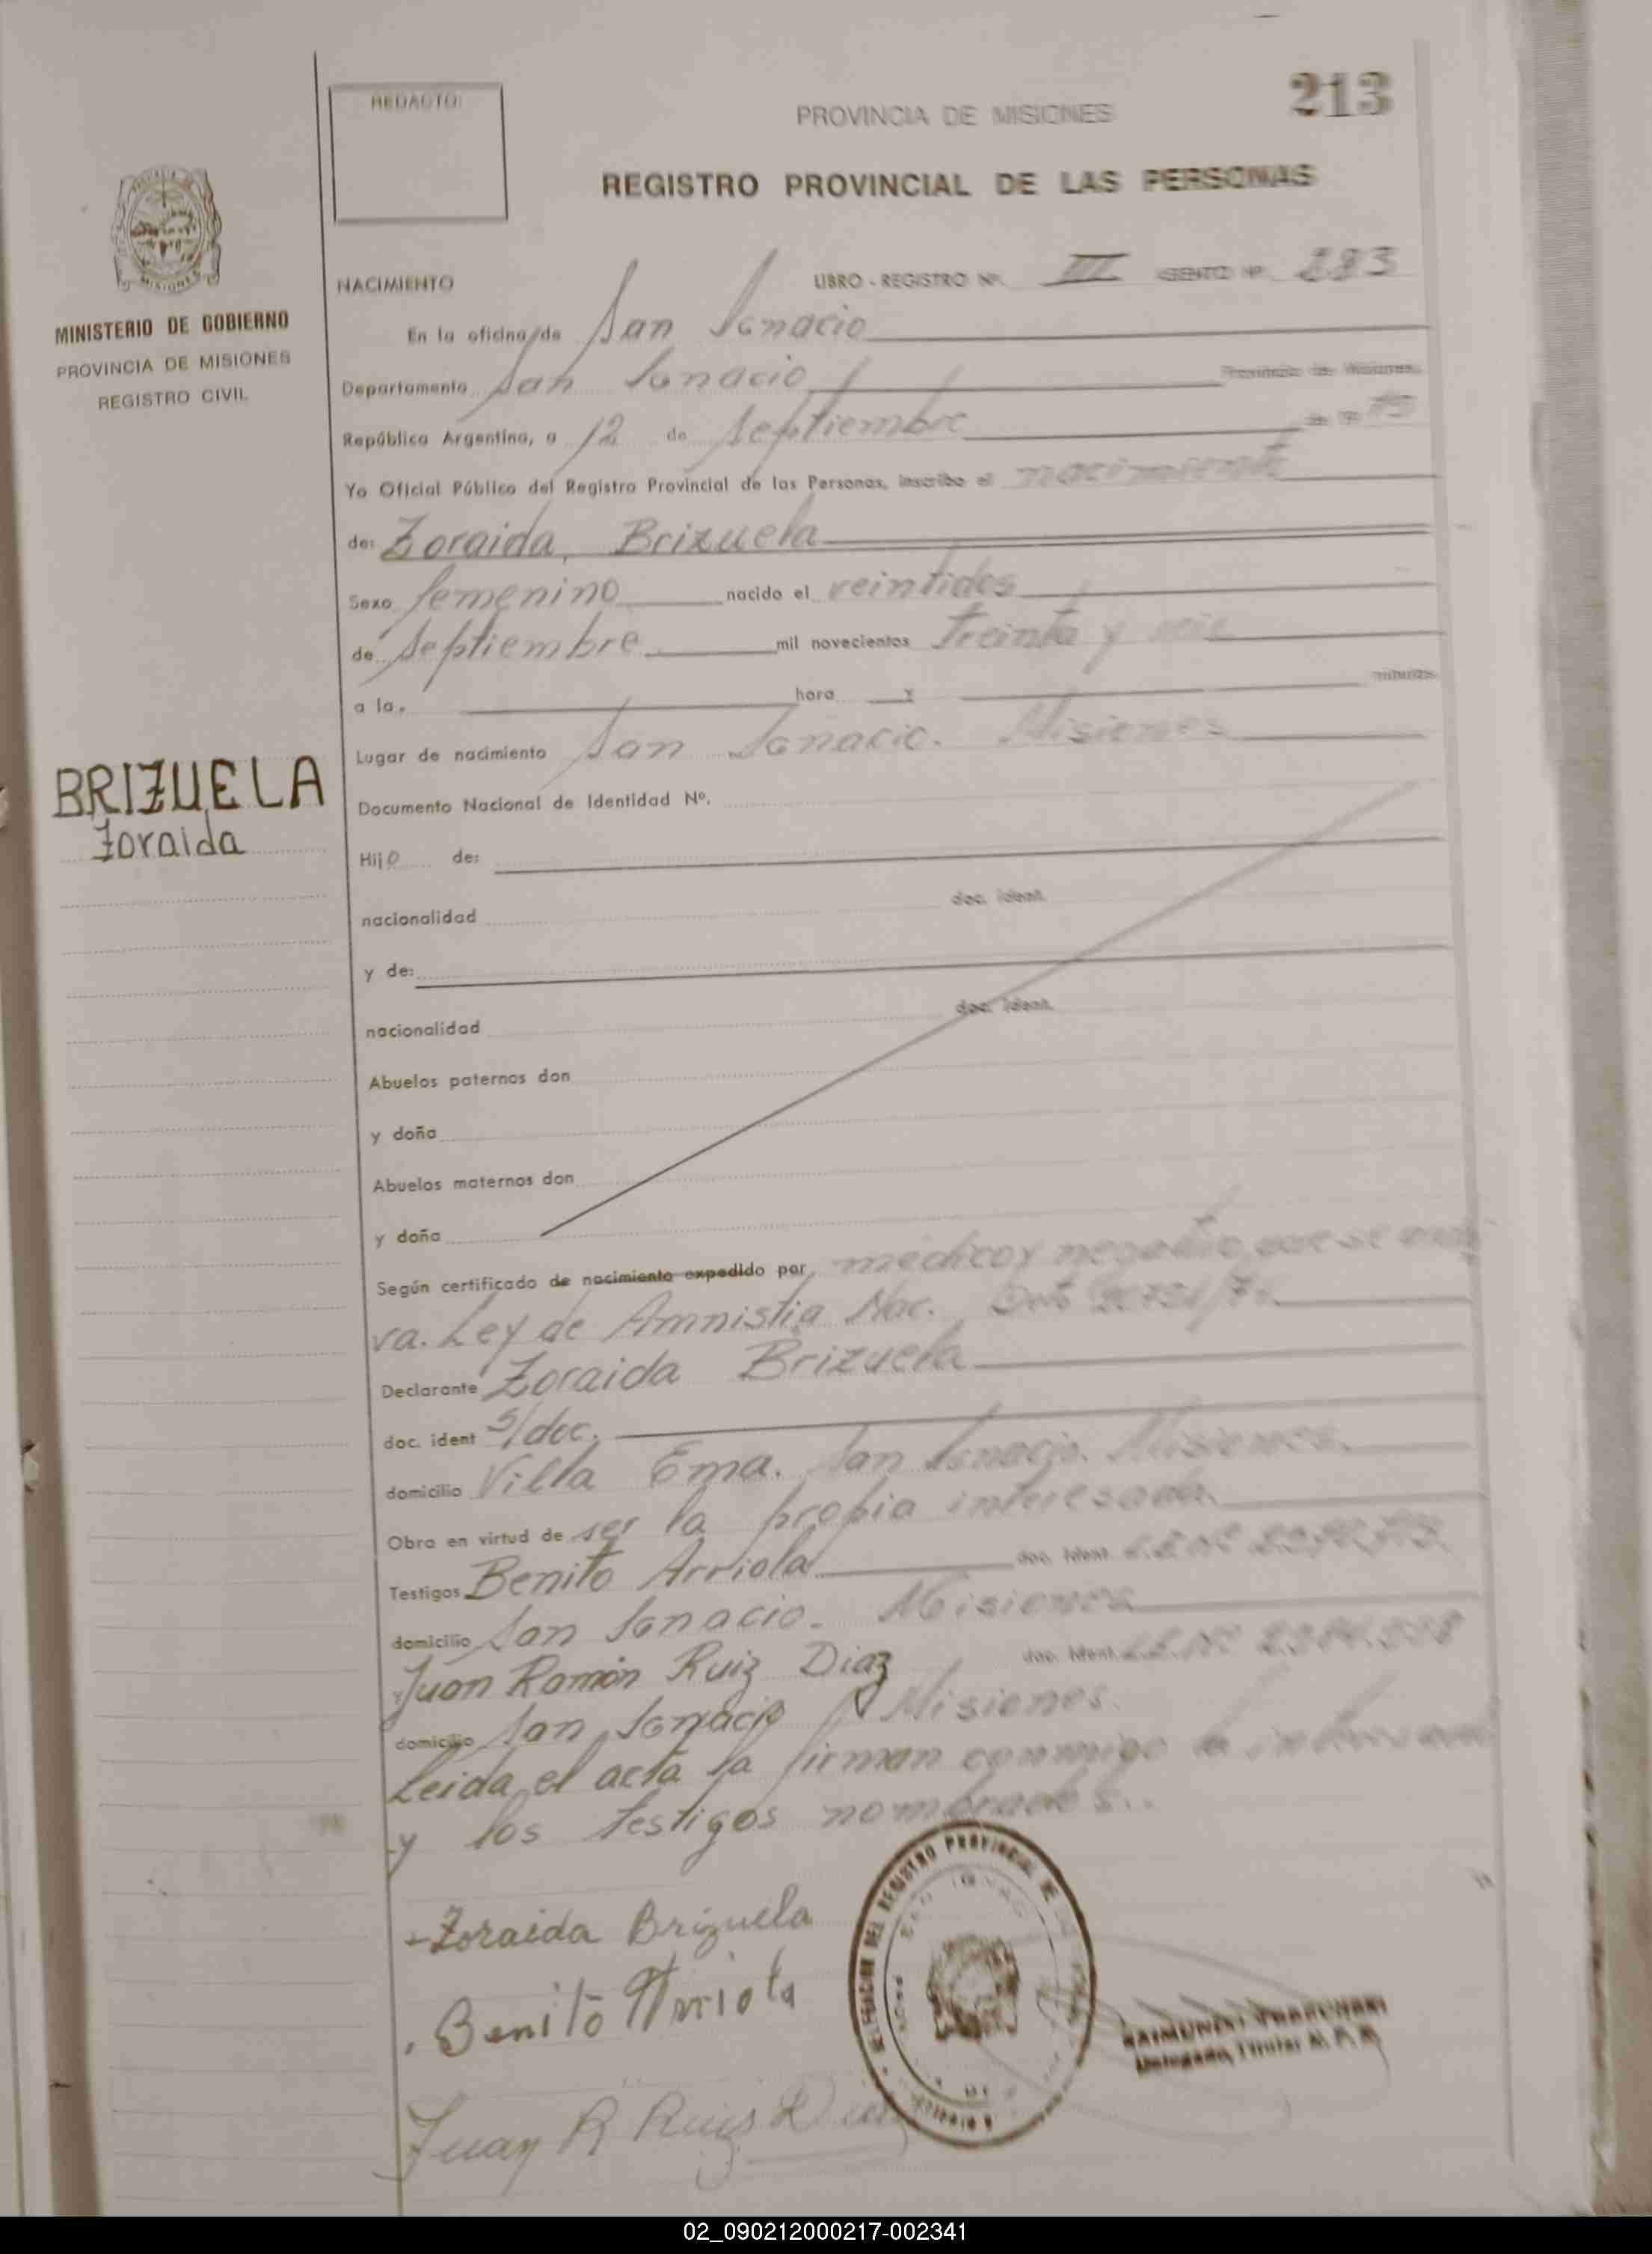 213
REDACTO:
PROVINCIA DE MISIONES
REGISTRO PROVINCIAL DE LAS PERSONAS
MISIONES
MINISTERIO DE GOBIERNO
PROVINCIA DE MISIONES
REGISTRO CIVIL
NACIMIENTO LIBRO - REGISTRO Nº. III ASIENTO Nº 283
En la oficina de San Ignacio
Departamento San Ignacio Provincia de Misiones.
República Argentina, a 12 de Septiembre de 19
Yo Oficial Público del Registro Provincial de las Personas, inscribo el nacimiento
de: Zoraida, Brizuela
Sexo femenino nacido el veintidos
de Septiembre mil novecientos treinta y seis
a la, hora y minutos
Lugar de nacimiento San Ignacio. Misiones
BRIZUELA
Zoraida
Documento Nacional de Identidad Nº.
Hijo de:
nacionalidad doc. ident.
y de:
nacionalidad doc. ident.
Abuelos paternos don
y doña
Abuelos maternos don
y doña
Según certificado de nacimiento expedido por, medico y negativo que se
va. Ley de Amnistia Nac.
Declarante Zoraida Brizuela
doc. ident s/doc.
domicilio Villa Ema. San Ignacio. Misiones.
Obra en virtud de ser la propia interesada.
Testigos Benito Arriola doc. ident.
domicilio San Ignacio. Misiones
Juan Ramón Ruiz Diaz doc. ident.
domicilio San Ignacio Misiones.
Leida el acta la firman conmigo la interesada
y los testigos nombrados..
Zoraida Brizuela
Benito Arriola
Juan R Ruis Diaz
DEL REGISTRO PROVINCIAL DE
Delegado Titular R. P. P.
02_090212000217-002341